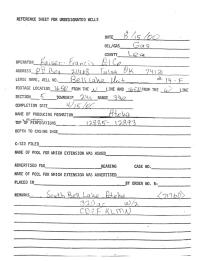 REFERENCE SHEET FOR UNDESIGNATED WELLS
DATE 8/15/00
OIL/GAS Gas
COUNTY Lea
OPERATOR Kaiser Francis Oil Co
ADDRESS P O Box 21468 Tulsa OK
LEASE NAME, WELL NO. Bell Lake Unit # 19-F
FOOTAGE LOCATION LINE AND LINE
SECTION TOWNSHIP RANGE
COMPLETION DATE
NAME OF PRODUCING FORMATION Atoka
TOP OF PERFORATIONS 12885-12893
DEPTH TO CASING SHOE
C-123 FILED
NAME OF POOL FOR WHICH EXTENSION WAS ASKED
ADVERTISED FOR HEARING CASE NO.
NAME OF POOL FOR WHICH EXTENSION WAS ADVERTISED
PLACED IN BY ORDER NO. R-
REMARKS South Bell Lake, Atoka
320 ac W/2
CDEF KLMN